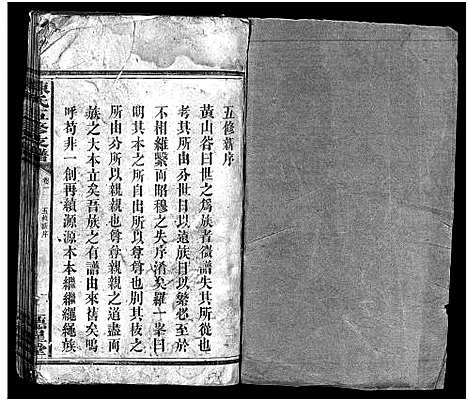 五修新序
黃山谷曰世之為族者微譜失其所從也
考其所由分世日以遠族日以繁必至於
不相維繫而昭穆之失序淆矣羅一峯曰
明其本之所自出所以尊尊也別其枝之
所由分所以親親也尊尊親親之道盡而
族之大本立矣吾族之有譜由來舊矣嗚
呼苟非一創再續源源木本繼繼繩繩族
氏五修支譜
卷一
五修新序